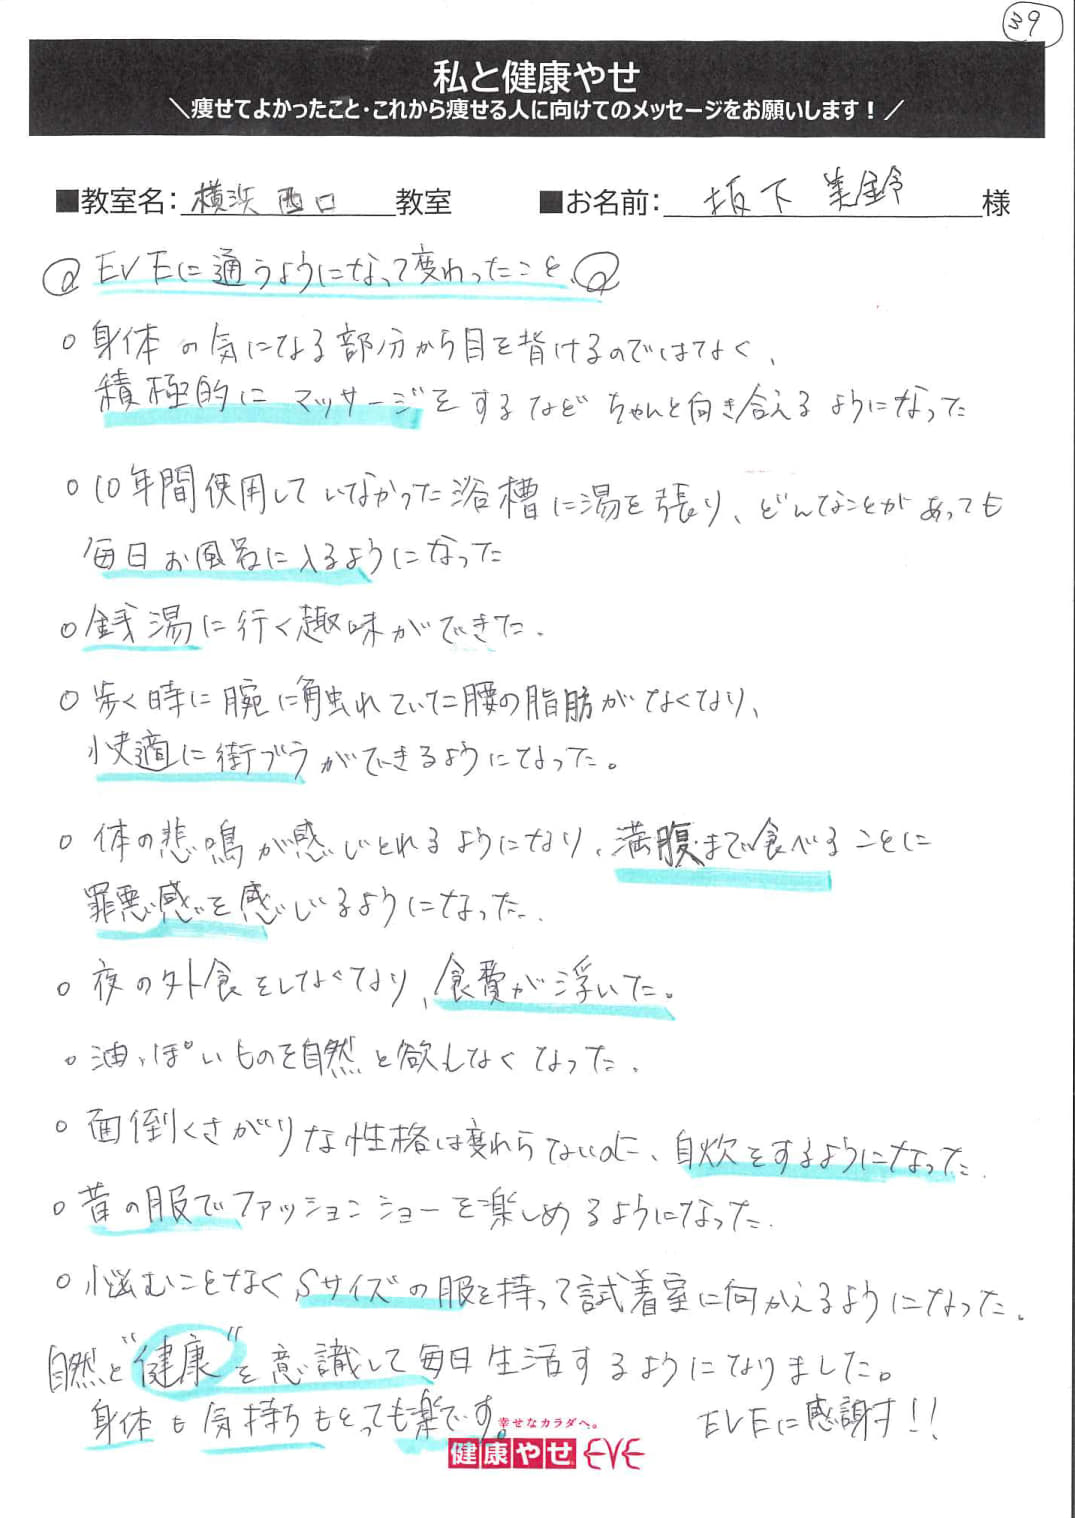 39
私と健康やせ
＼痩せてよかったこと・これから痩せる人に向けてのメッセージをお願いします！／
■教室名：横浜西口教室 ■お名前：坂下 美鈴様
EVEに通うようになって変わったこと
○身体の気になる部分から目を背けるのではなく、
積極的にマッサージをするなどちゃんと向き合えるようになった
○10年間使用していなかった浴槽に湯を張り、どんなことがあっても
毎日お風呂に入るようになった
○銭湯に行く趣味ができた.
○歩く時に腕に触れていた腰の脂肪がなくなり、
快適に街ブラができるようになった。
○体の悲鳴が感じとれるようになり、満腹まで食べることに
罪悪感を感じるようになった..
○夜の外食をしなくなり、食費が浮いた。
○油っぽいものを自然と欲しなくなった.
○面倒くさがりな性格は変わらないのに、自炊をするようになった.
○昔の服でファッションショーを楽しめるようになった.
○悩むことなくSサイズの服を持って試着室に向かえるようになった.
自然と"健康"を意識して毎日生活するようになりました。
身体も気持ちもとっても楽です。 EVEに感謝す!!
幸せなカラダへ。
健康やせEVE